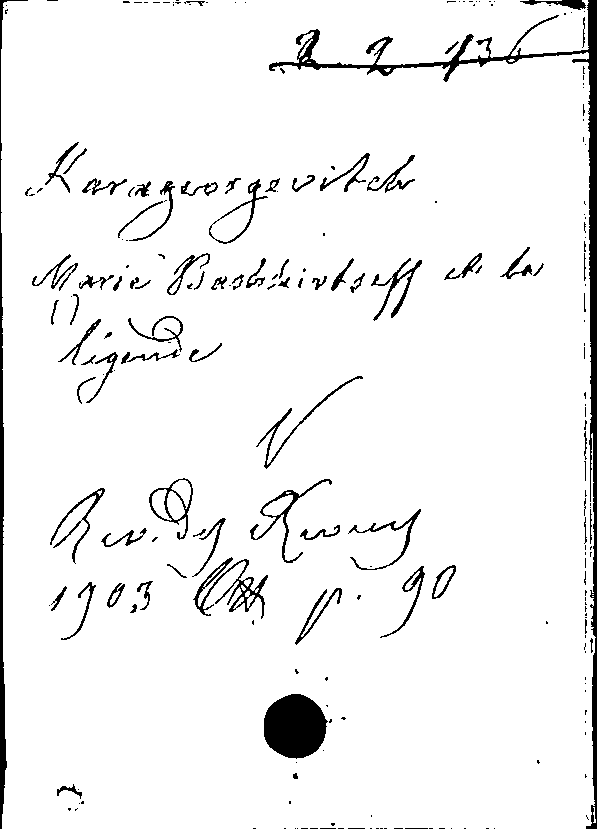 2 2 736
Karageorgevitch
Marie Bashkirtseff et la
légende
V
Rev. des Revues
1903 Oct p. 90